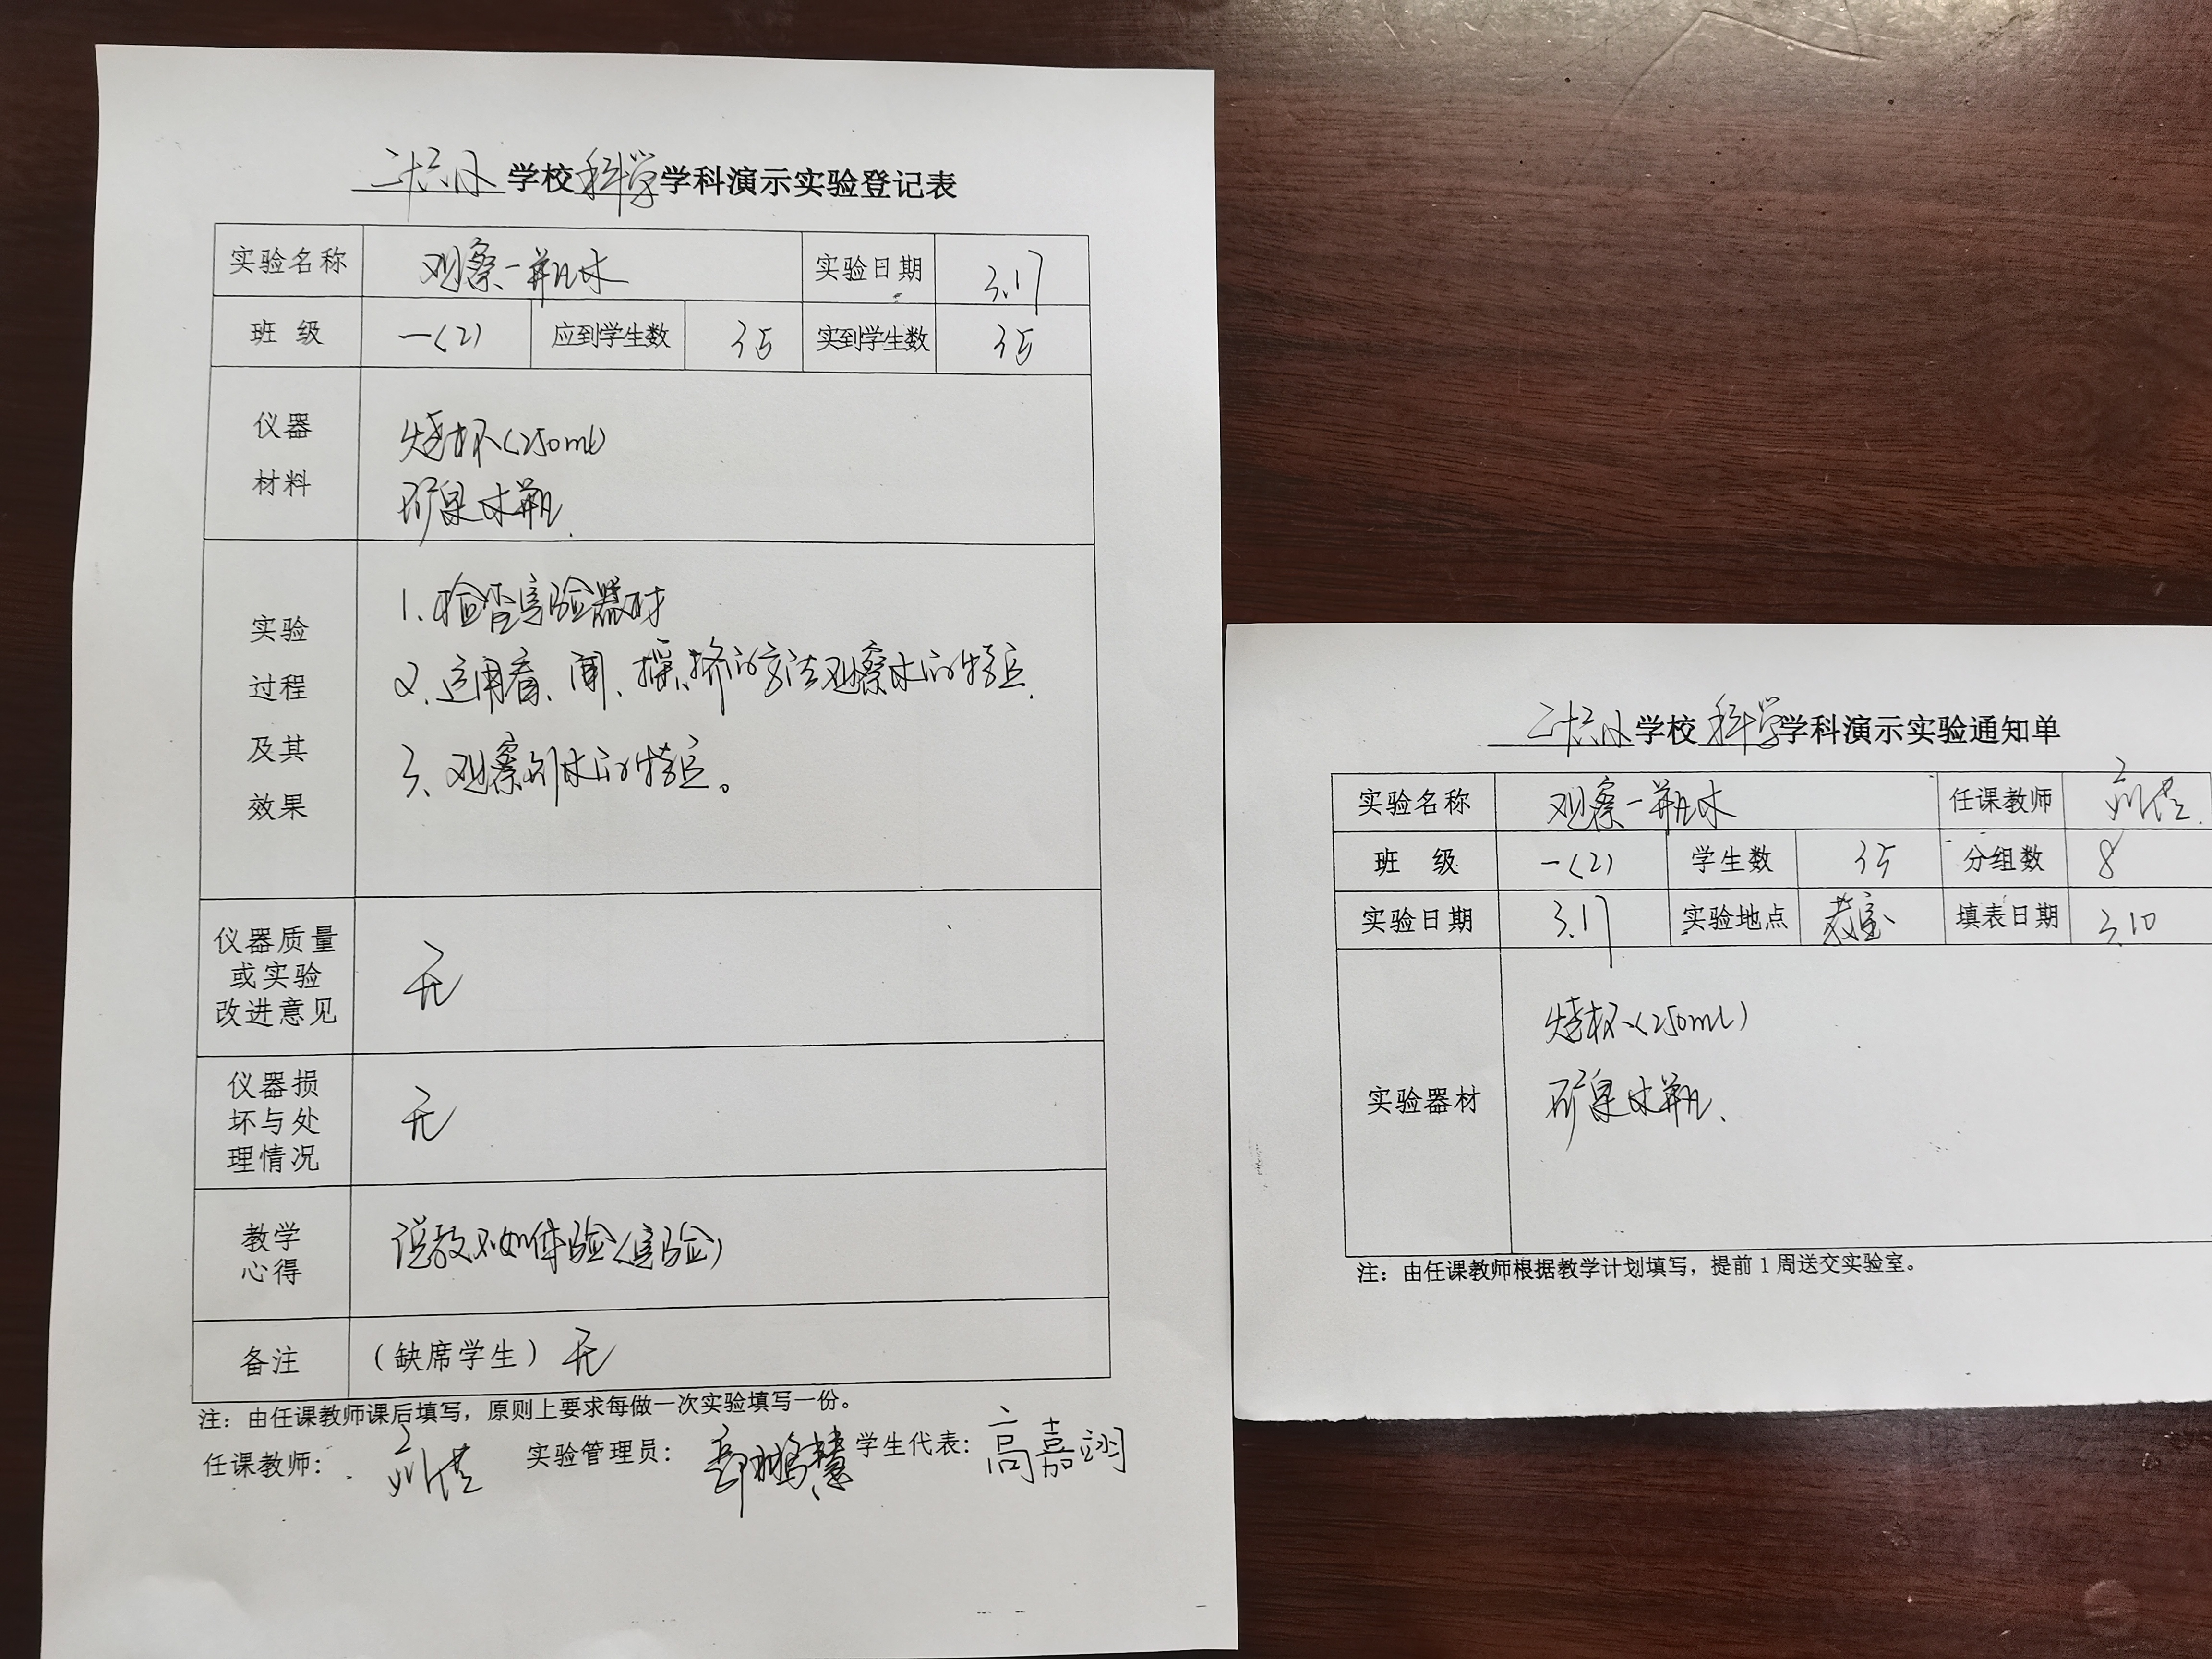 二十六小学校科学学科演示实验登记表
实验名称 观察一瓶水 实验日期 3.17
班 级 一(2) 应到学生数 35 实到学生数 35
仪器
材料
烧杯(250ml)
矿泉水瓶.
实验
过程
及其
效果
1.检查实验器材
2.运用看、闻、摇、挤的方法观察水的特点.
3、观察到水的特点。
仪器质量
或实验
改进意见
无
仪器损
坏与处
理情况
无
教学
心得
说教不如体验(实验)
备注 (缺席学生) 无
注：由任课教师课后填写，原则上要求每做一次实验填写一份。
任课教师： 实验管理员： 学生代表：高嘉翊
二十六小学校科学学科演示实验通知单
实验名称 观察一瓶水 任课教师
班 级 一(2) 学生数 35 分组数 8
实验日期 3.17 实验地点 教室 填表日期 3.10
实验器材
烧杯(250ml)
矿泉水瓶、
注：由任课教师根据教学计划填写，提前1周送交实验室。